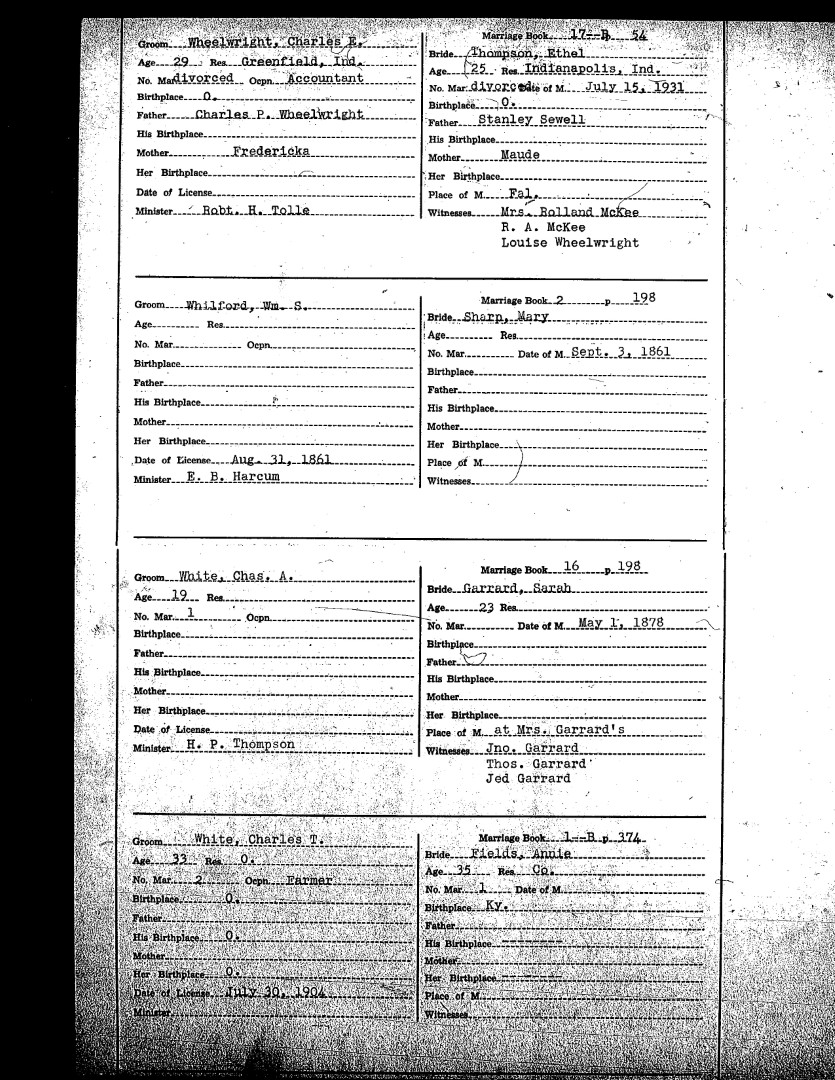 Groom Wheelwright, Charles E.
Age 29 Res. Greenfield, Ind.
No. Mar. divorced Ocpn. Accountant
Birthplace O.
Father Charles P. Wheelwright
His Birthplace
Mother Fredericka
Her Birthplace
Date of License
Minister Robt. H. Tolle
Marriage Book 17--B 54
Bride Thompson, Ethel
Age 25 Res. Indianapolis, Ind.
No. Mar. divorced Date of M. July 15, 1931
Birthplace O.
Father Stanley Sewell
His Birthplace
Mother Maude
Her Birthplace
Place of M. Fal.
Witnesses Mrs. Rolland McKee
R. A. McKee
Louise Wheelwright
Groom Whilford, Wm. S.
Age Res.
No. Mar. Ocpn.
Birthplace
Father
His Birthplace
Mother
Her Birthplace
Date of License Aug. 31, 1861
Minister E. B. Harcum
Marriage Book 2 p 198
Bride Sharp, Mary
Age Res.
No. Mar. Date of M. Sept. 3, 1861
Birthplace
Father
His Birthplace
Mother
Her Birthplace
Place of M.
Witnesses
Groom White, Chas. A.
Age 19 Res.
No. Mar. 1 Ocpn.
Birthplace
Father
His Birthplace
Mother
Her Birthplace
Date of License
Minister H. P. Thompson
Marriage Book 16 p 198
Bride Garrard, Sarah
Age 23 Res.
No. Mar. Date of M. May 1, 1878
Birthplace
Father
His Birthplace
Mother
Her Birthplace
Place of M. at Mrs. Garrard's
Witnesses Jno. Garrard
Thos. Garrard
Jed Garrard
Groom White, Charles T.
Age 33 Res. O.
No. Mar. 2 Ocpn. Farmer
Birthplace O.
Father
His Birthplace O.
Mother
Her Birthplace O.
Date of License July 30, 1904
Minister
Marriage Book 1--B p 374
Bride Fields, Annie
Age 35 Res. Co.
No. Mar. 1 Date of M.
Birthplace Ky.
Father
His Birthplace ---------
Mother
Her Birthplace ---------
Place of M.
Witnesses